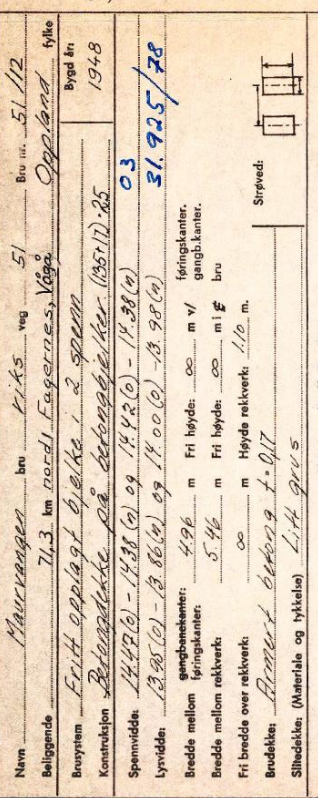 Navn Maurvangen bru riks veg 51 Bru nr. 51/12
Beliggende 71,3 km nord f Fagernes, Vågå Oppland fylke
Brusystem Fritt opplagt bjelke i 2 spenn Bygd år: 1948
Konstruksjon Betongdekke på betongbjelker (135+17)·25
Spennvidde: 14.47(o) - 14.38(n) og 14.42(o) - 14.38(n) 03
Lysvidde: 13.95(o) - 13.86(n) og 14.00(o) - 13.98(n) 31.925/78
Bredde mellom gangbanekanter: føringskanter: 4.96 m Fri høyde: ∞ m v/ føringskanter. gangb.kanter.
Bredde mellom rekkverk: 5.46 m Fri høyde: ∞ m i bru
Fri bredde over rekkverk: ∞ m Høyde rekkverk: 1.10 m.
Brudekke: Armert betong t=0,17 Strøved:
Slitedekke: (Materiale og tykkelse) Litt grus